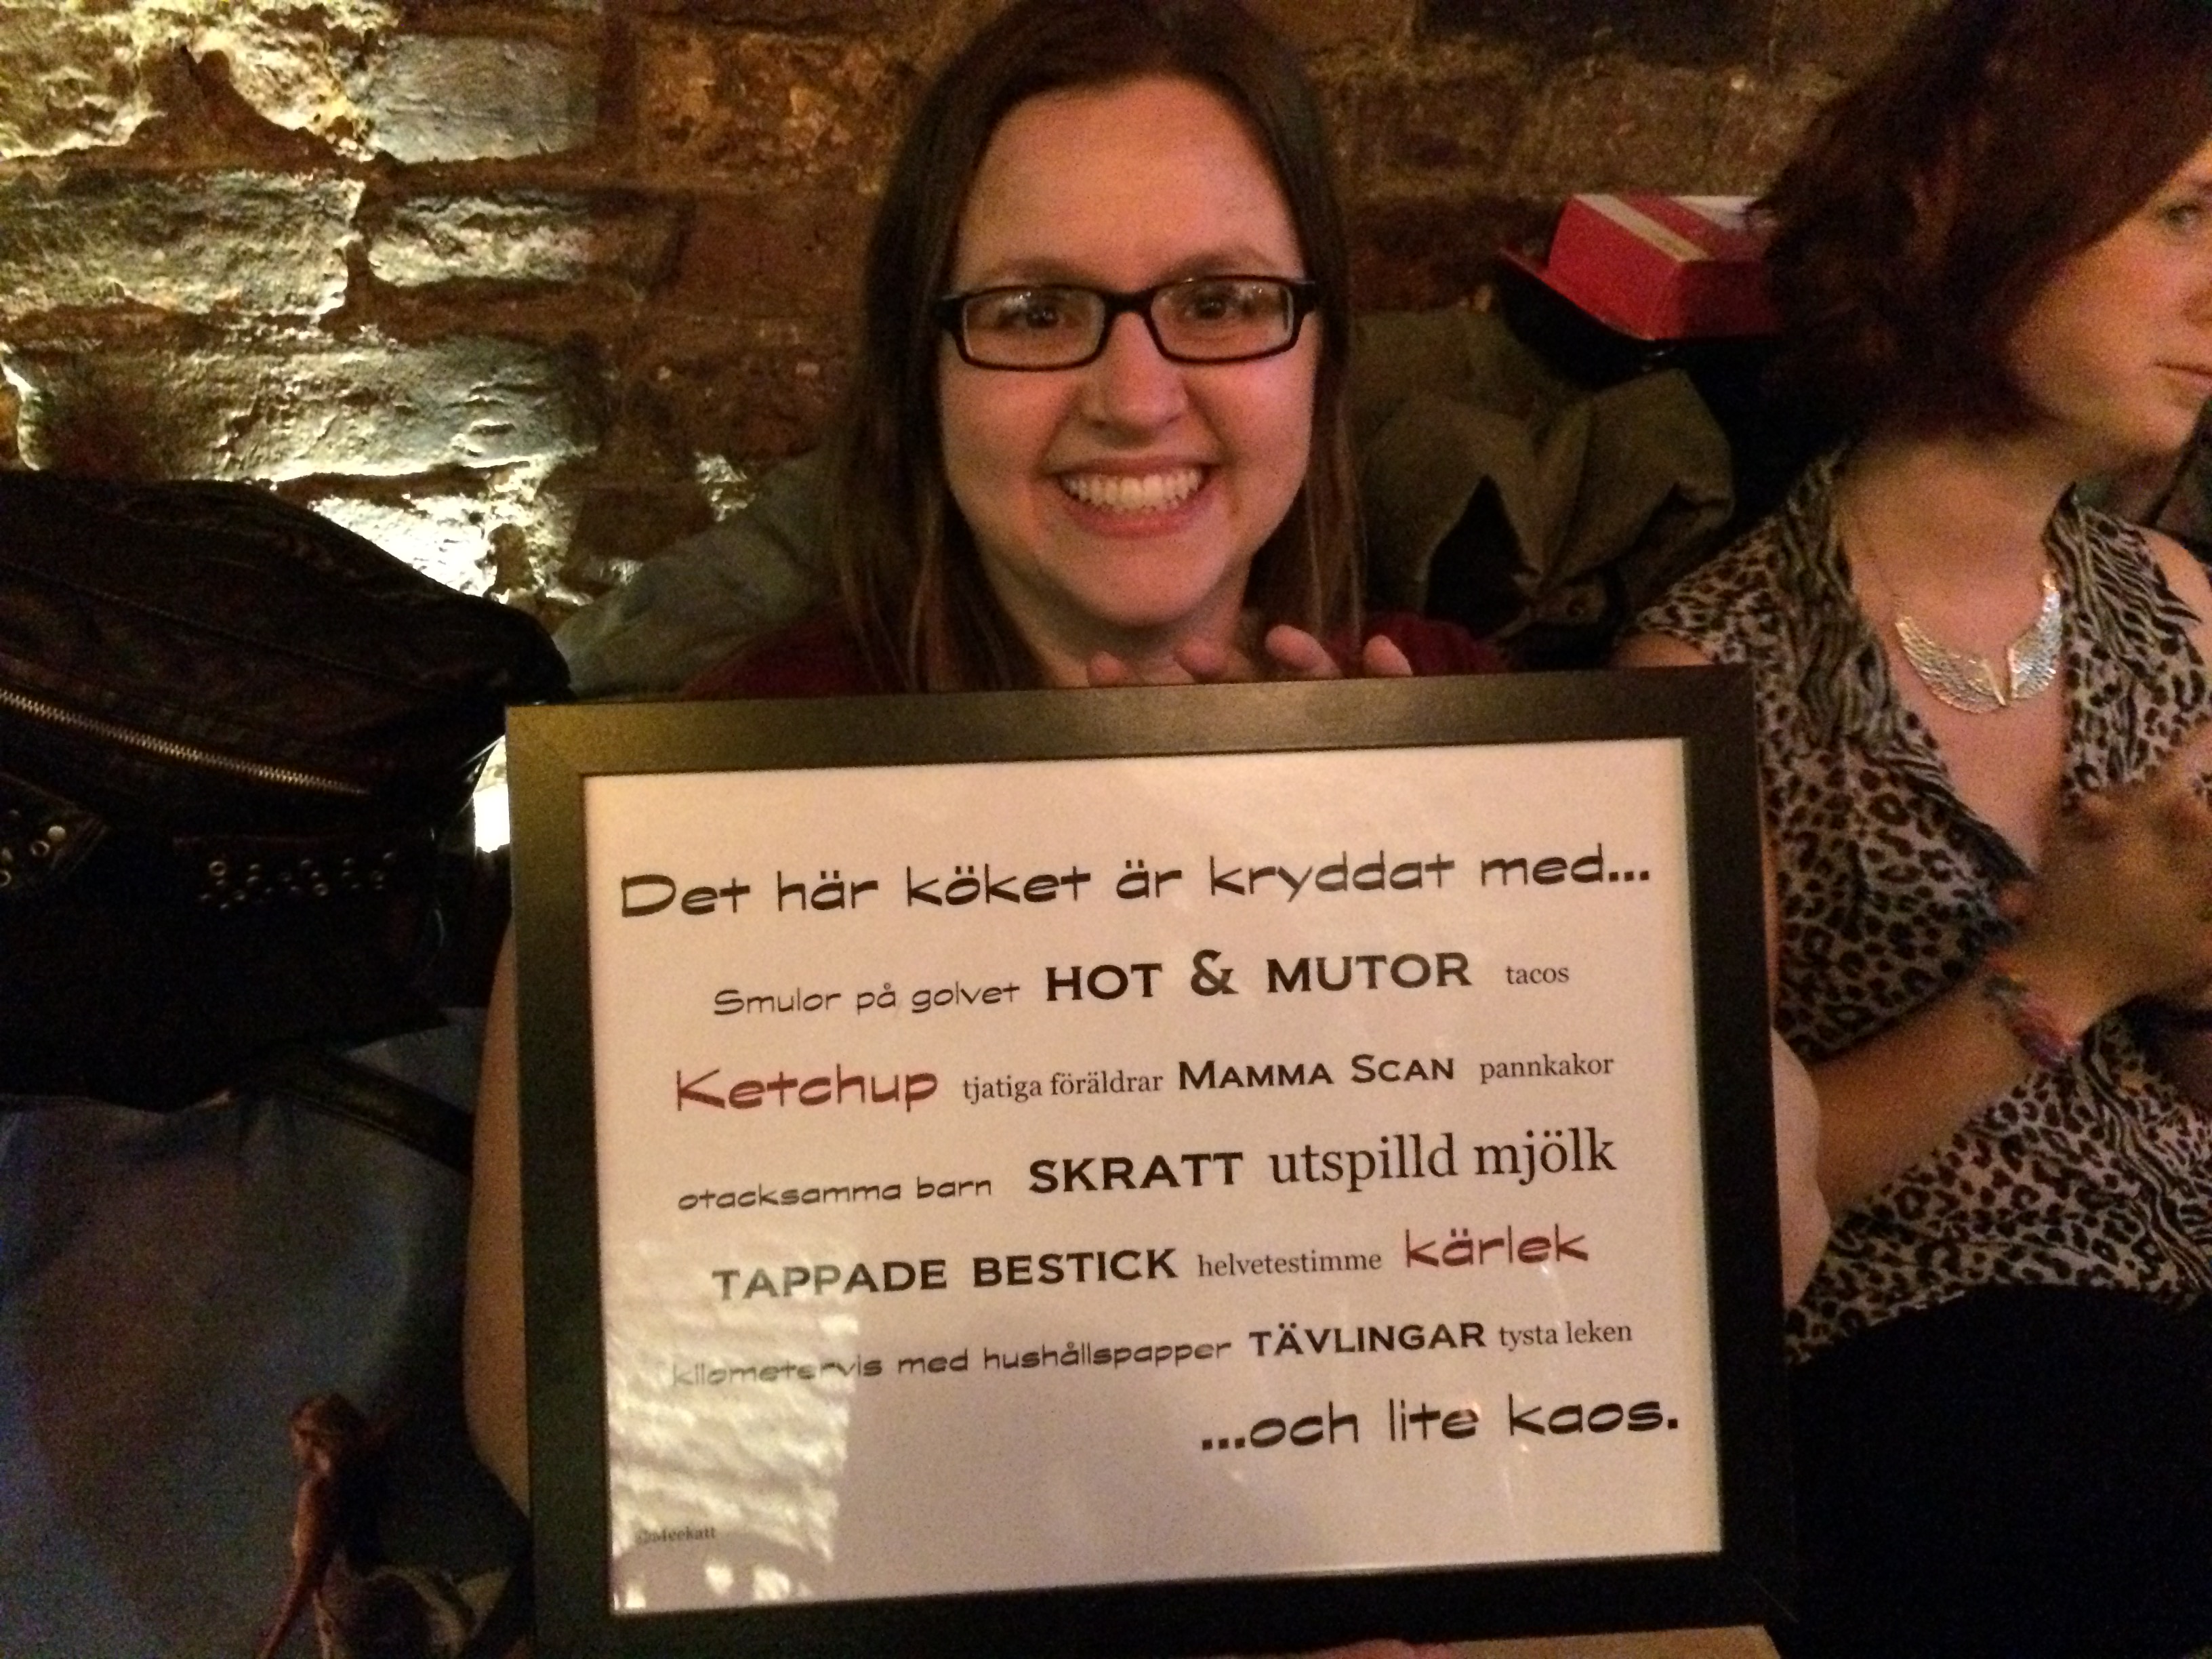 Det här köket är kryddat med...
Smulor på golvet HOT & MUTOR tacos
Ketchup tjatiga föräldrar MAMMA SCAN pannkakor
otacksamma barn SKRATT utspilld mjölk
TAPPADE BESTICK helvetestimme kärlek
kilometervis med hushållspapper TÄVLINGAR tysta leken
...och lite kaos.
@Meekatt